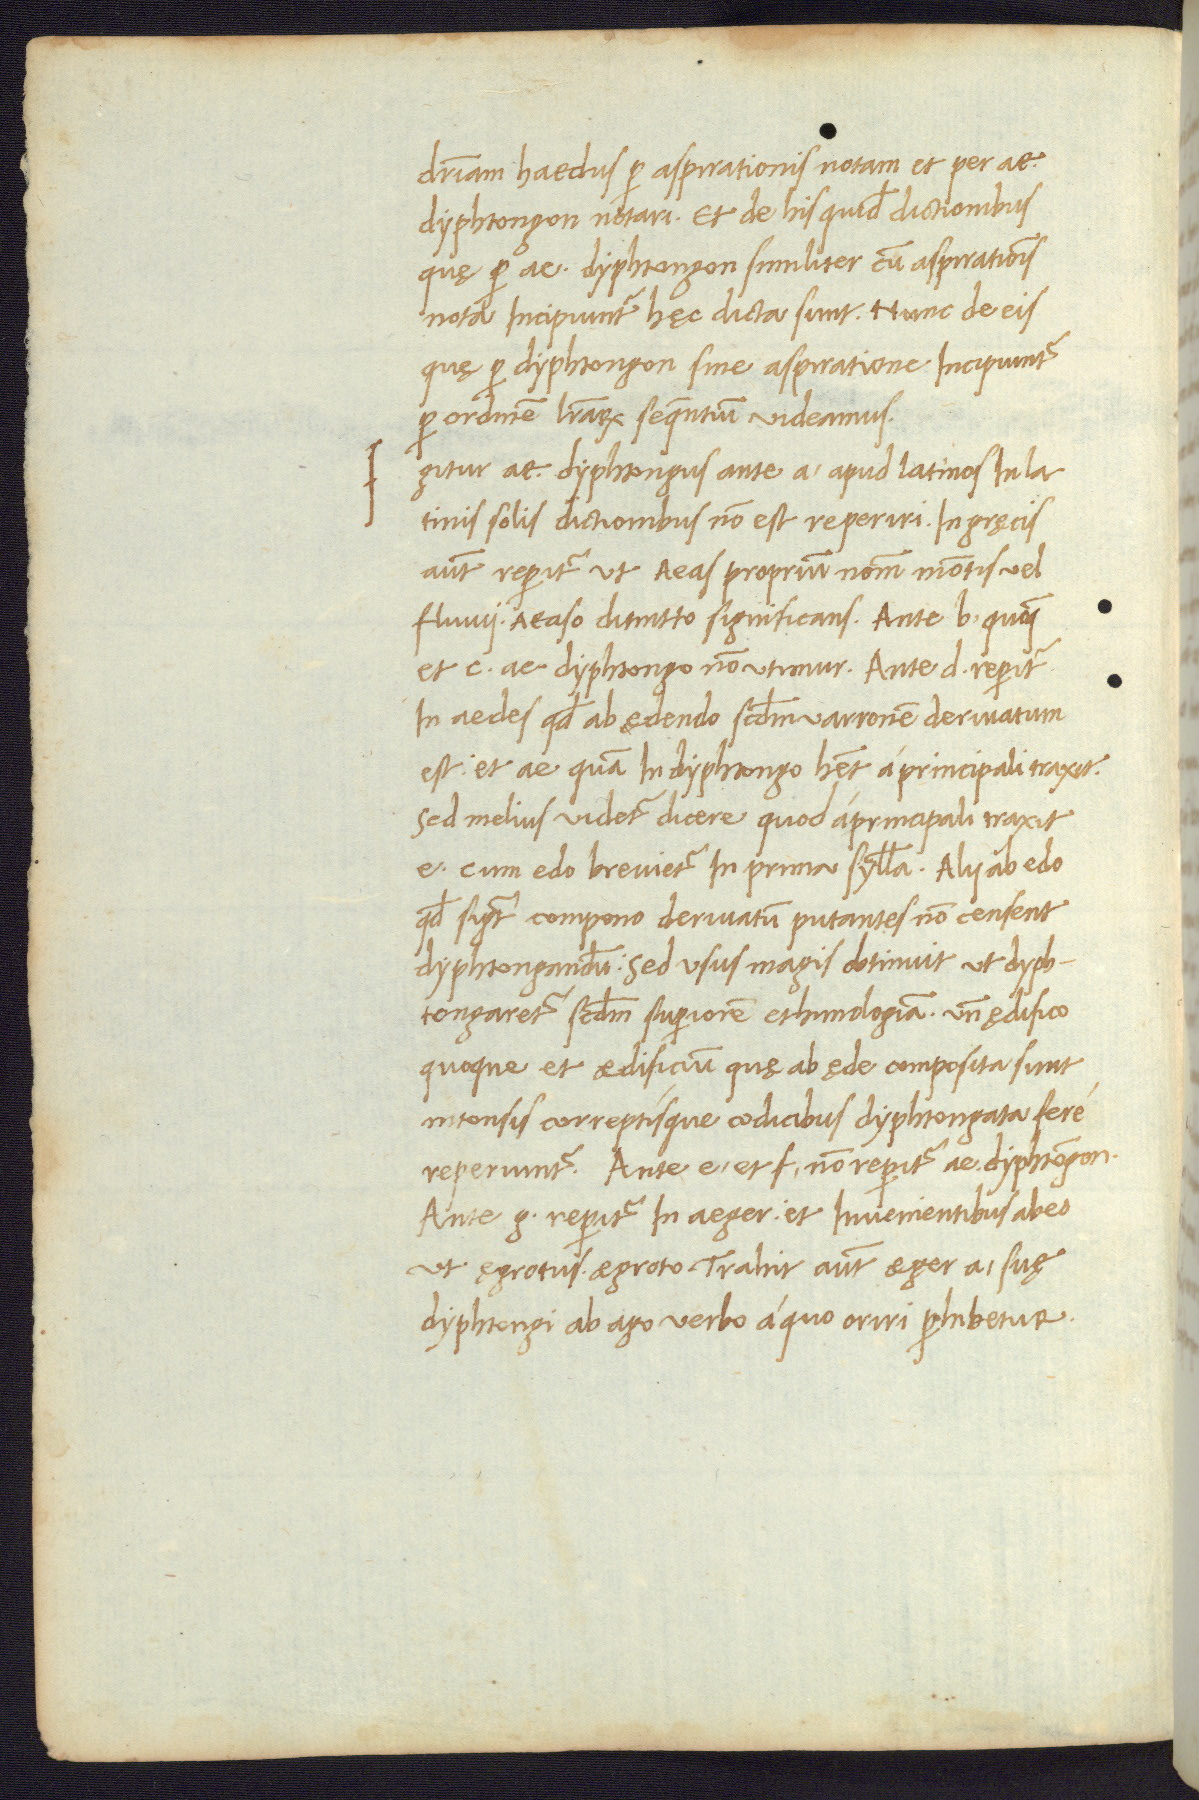 dr̄iam haedus ꝑ aspirationis notam et per ae.
dyphtongon notari. Et de his quid̄ dictionibus
quę ꝑ ae. dyphtongon similiter cū aspiratiōis
notā Incipiunt᷑ hęc dicta sunt. Nunc de eis
quę ꝑ dyphtongon sine aspiratione Incipiunt᷑
ꝑ ordinē lr̄aꝝ seq̄ntiū videamus.
I gitur ae. dyphtongus ante a, apud latinos In la
tinis solis dictionibus nō est reperiri. In gręcis
aūt reꝑit᷑ ut Aeas propriū nom̄ mōtis vel
fluuij. Aeaso dimitto significans. Ante b, quoq̄
et c. ae dyphtongo nō utimur. Ante d. reꝑit᷑
In aedes qd̄ ab ędendo scd̄m varronē deriuatum
est. et ae quā In dyphtongo hēt á principali traxit.
Sed melius videt᷑ dicere quod á principali traxit
e. cum edo breuiet᷑ In prima syll̄a. Alij ab edo
qd̄ sigt᷑ compono deriuatū putantes nō censent
dyphtongandū. Sed usus magis obtinuit ut dyph-
tongaret᷑ scd̄m suꝑiorē ethimologiā. Vn̄ ędifico
quoque et ædificiū quę ab ęde composita sunt
intonsis correptísque codicibus dyphtongata feré
reperiunt᷑. Ante e, et f, nō reꝑit᷑ ae. dyphtōgon.
Ante g. reꝑit᷑ In aeger. et Inuenientibus ab eo
ut ęgrotus. ægroto. Trahit aūt æger a, suę
dyphtongi ab ago verbo á quo oriri ꝑhibetur.